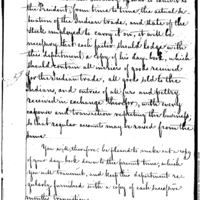 the President, from time to time, the actual si-
tuation of the Indian trade, and state of the
stock employed to carry it on, it will be
necessary that each factor should lodge with
this department a copy of his day book, which
should contain an entry of goods received
for the Indian trade, all goods sold to the
Indians, and entries of all furs and peltry
received in exchange therefor, with every
expense and transaction respecting this business,
so that regular accounts may be raised from the
same.
You will, therefore, be pleased to make out a copy
of your day book down to the present time, which
you will transmit, and keep this department re-
gularly furnished with a copy of each successive
month's transactions.